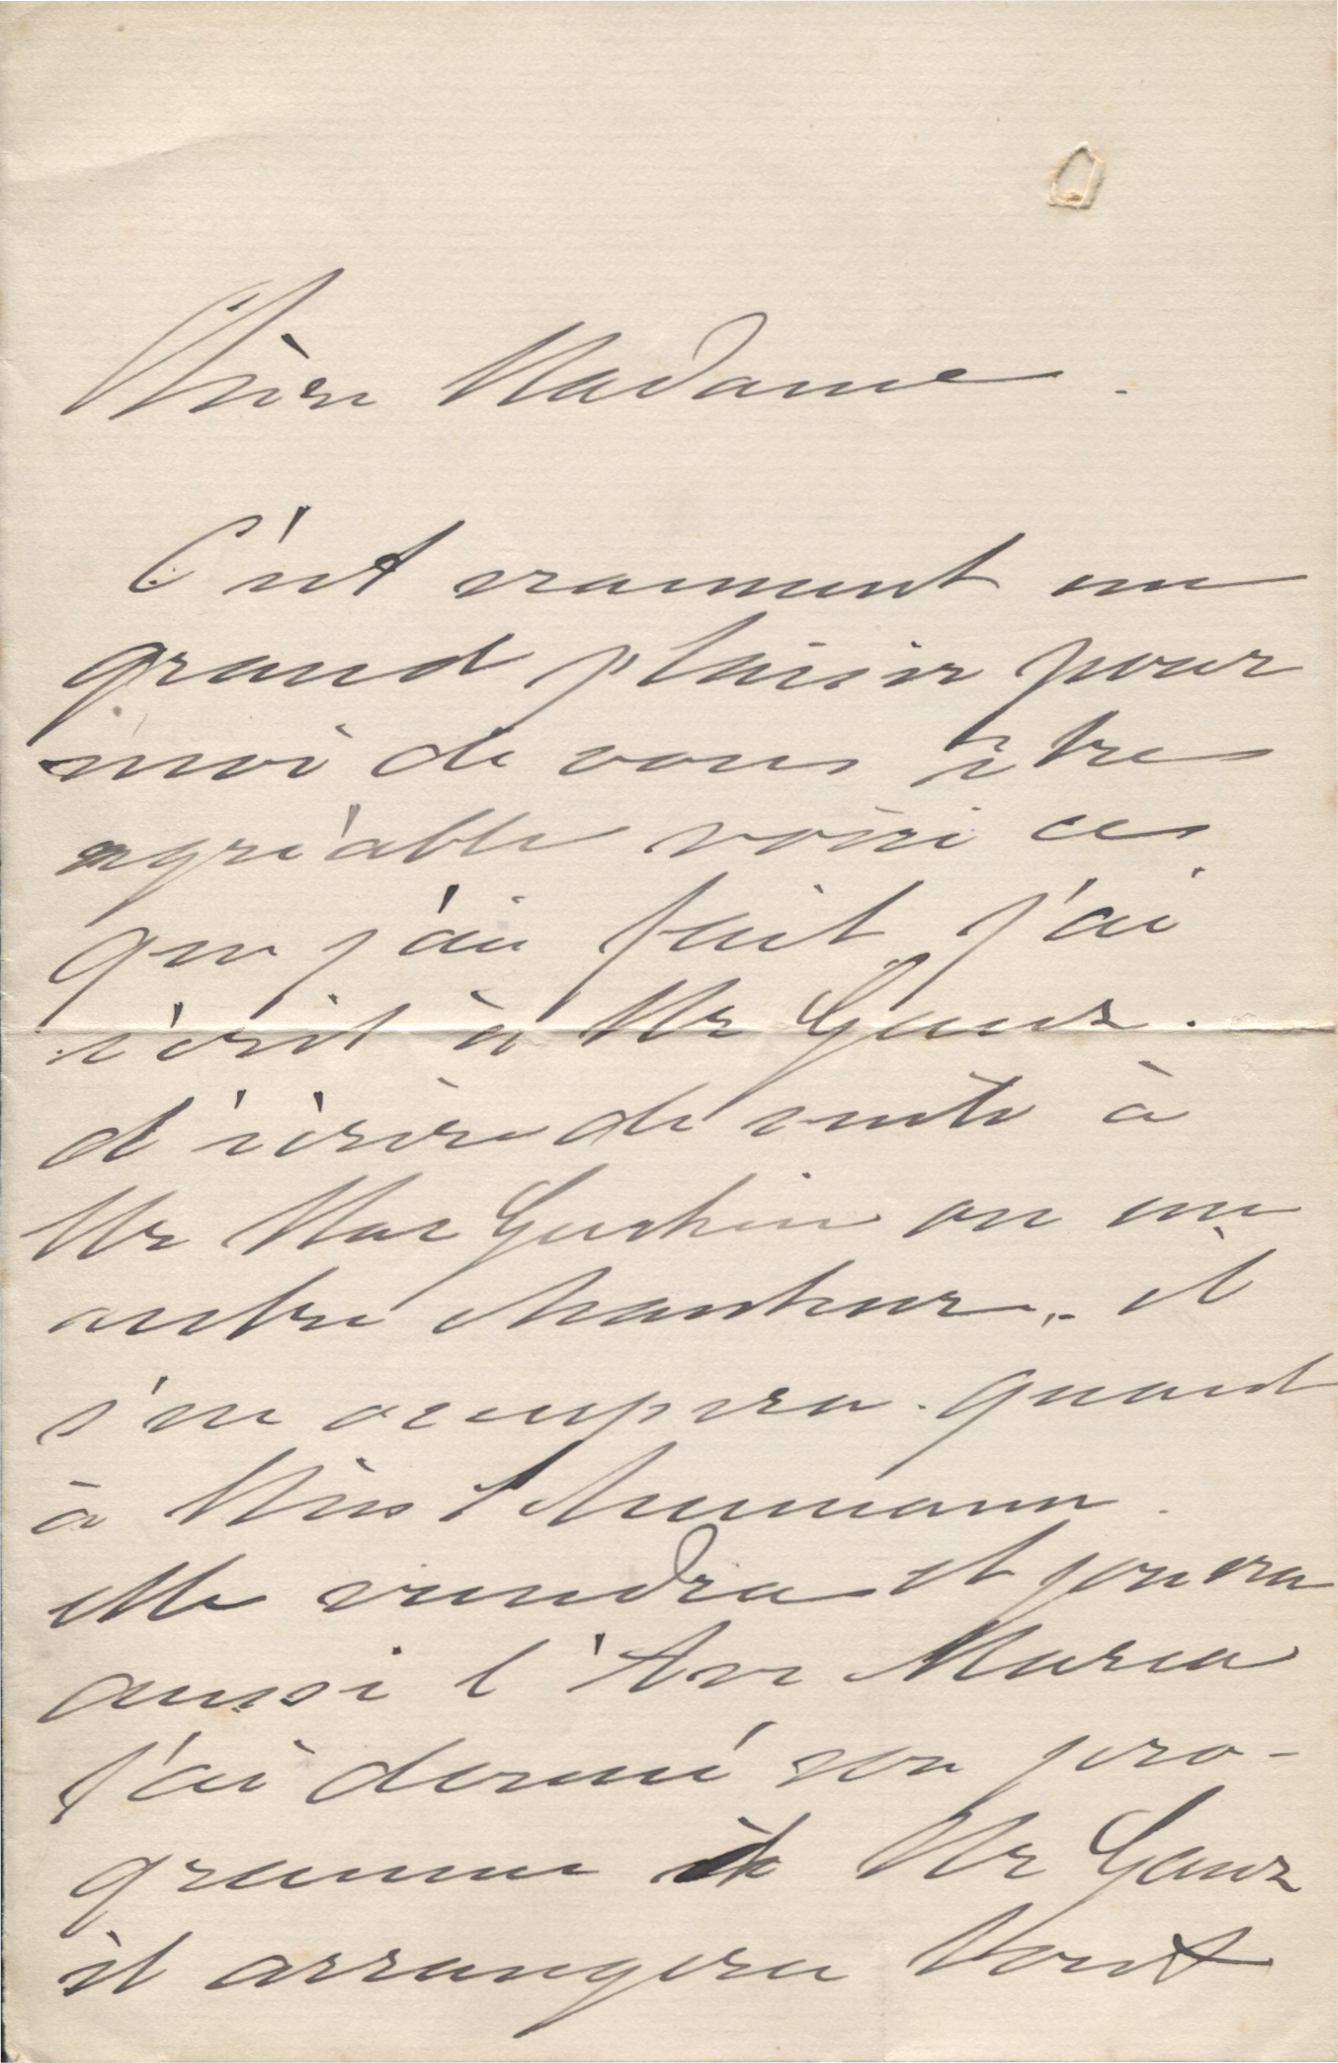 Chère Madame.
C'est vraiment un
grand plaisir pour
moi de vous être
agréable voici ce
que j'ai fait j'ai
écrit à Mr Ganz.
d'écrire de suite à
Mr Mac Guckin ou un
autre chanteur, il
s'en occupera. quant
à Miss Schumann.
elle viendra et jouera
aussi l'Ave Maria
j'ai donné son pro-
gramme à Mr Ganz
il arrangera tout